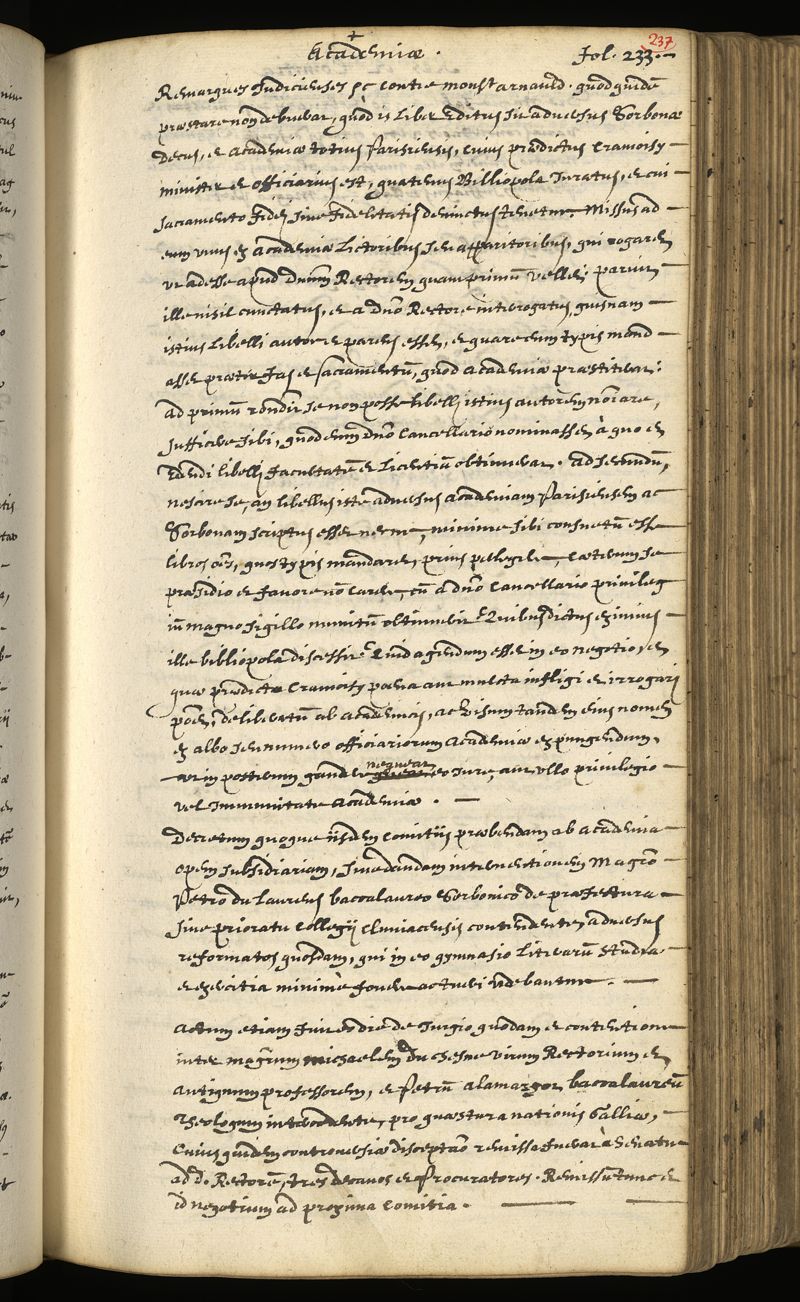 Academiæ.
Fol. 233.
237
Remarques Judicieuses &c contre monsr arnauld. quod quidē
præstare non debuerat, quòd is liber Editus sit aduersus Sorbonæ
Decus, et Academiæ totius Parisiensis, cuius prædictus Cramoisy
minister et officiarius est, quatenus Billiopola Juratus, et cui
sacramento fidei siue fidelitatis deuinctus tenetur. Missus ad
eum unus ex academiæ lictoribus seu apparitoribus, qui rogaret
ut adesse apud Dnum Rectorem quamprimum vellet; paruit
ille nisil cunctatus, et a dno Rectore interrogatus, quisnam
istius libelli autor et parens esset, et quare eum typis mand
asset præter fas et sacramentū, quod academiæ præstiterat:
ad primum rondit se non posse libelli istius autorem noiare,
sufficere sibi, quod eum dno Cancellario nominasset à quo et
Edendi libelli facultatē et licentiā obtinuerat. Ad secundum,
nescire se, an libellus iste aduersus academiam Parisiensem ac
Sorbonam scriptus esset necne, minime sibi consuetū esse
libros oēs, quos typis mandaret, prius pellegere, cæterum se
præsidio et fauore non carere, cū a dno Cancellario priuileg
iū magno sigillo munitū obtinuerit. Quibus dictus eximius
ille bibliopola discessit. Quid agendum esset in eo negotio, et
quæ prædicto Cramoisy pœna aut mulcta infligi et irrogari
posset, deliberatū ab academicis, ac visum tandem eius nomen
ex albo seu numero officiariorum academiæ expungendum,
ut in posterum gaudere nequeat eo iure, aut ullo priuilegio
vel Immunitate academiæ.
Decretum quoque iisdem Comitiis præbendam ab academia
opem subsidiariam, siue dandam interuentionem Magro
Petro du Laurens baccalaureo Sorbonico de præfectura
siue prioratu Collegii Cluniacensis contendenti, aduersus
reformatos quosdam, qui in eo gymnasio literarū studia
et exercitia minimè fouere ac tueri videbantur.
Actum etiam fuit eo die de Jurgio quodam et contentione
inter magrum michaelem Du Chesne virum Rectorium et
antiquum professorem, et Petrū alamargot baccalaureū
theologum intercedente, pro quæstura nationis Galliæ,
Cuius quidem controuersiæ disceptao remissa fuerat à Senatu
ad D. Rectorē, tres decanos et Procuratores. Remissū tunc et
id negotium ad proxima Comitia.